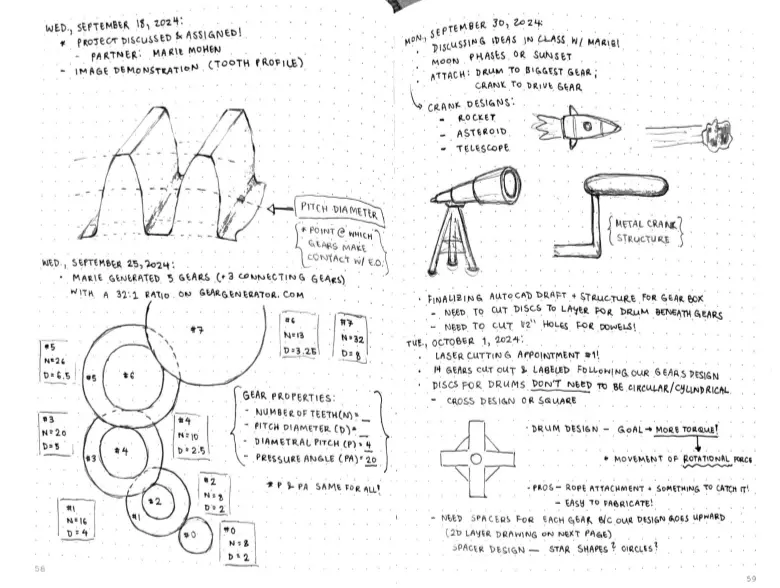 WED., SEPTEMBER 18, 2024:
* PROJECT DISCUSSED & ASSIGNED!
- PARTNER: MARIE MOHEN
- IMAGE DEMONSTRATION (TOOTH PROFILE)
PITCH DIAMETER
* POINT @ WHICH
GEARS MAKE
CONTACT W/ E.O.
WED., SEPTEMBER 25, 2024:
• MARIE GENERATED 5 GEARS (+3 CONNECTING GEARS)
WITH A 32:1 RATIO ON GEARGENERATOR.COM
#7
#6
N=13
D=3.25
#7
N=32
D=8
#5
N=26
D=6.5
#5
#6
GEAR PROPERTIES:
- NUMBER OF TEETH (N) = _
- PITCH DIAMETER (D) = _
- DIAMETRAL PITCH (P) = 4
- PRESSURE ANGLE (PA) = 20
#3
N=20
D=5
#4
N=10
D=2.5
#3
#4
* P & PA SAME FOR ALL!
#2
N=8
D=2
#1
N=16
D=4
#1
#2
#0
#0
N=8
D=2
58
MON., SEPTEMBER 30, 2024:
• DISCUSSING IDEAS IN CLASS W/ MARIE!
• MOON PHASES OR SUNSET
• ATTACH: DRUM TO BIGGEST GEAR;
CRANK TO DRIVE GEAR
CRANK DESIGNS:
- ROCKET
- ASTEROID
- TELESCOPE
METAL CRANK
STRUCTURE
• FINALIZING AUTOCAD DRAFT + STRUCTURE FOR GEAR BOX
- NEED TO CUT DISCS TO LAYER FOR DRUM BENEATH GEARS
- NEED TO CUT 1/2" HOLES FOR DOWELS!
TUE., OCTOBER 1, 2024:
LASER CUTTING APPOINTMENT #1!
• 14 GEARS CUT OUT & LABELED FOLLOWING OUR GEARS DESIGN
• DISCS FOR DRUMS DON'T NEED TO BE CIRCULAR/CYLINDRICAL
- CROSS DESIGN OR SQUARE
• DRUM DESIGN - GOAL → MORE TORQUE!
* MOVEMENT OF ROTATIONAL FORCE
• PROS - ROPE ATTACHMENT + SOMETHING TO CATCH IT!
- EASY TO FABRICATE!
- NEED SPACERS FOR EACH GEAR B/C OUR DESIGN GOES UPWARD
(2D LAYER DRAWING ON NEXT PAGE)
SPACER DESIGN — STAR SHAPES? CIRCLES?
59